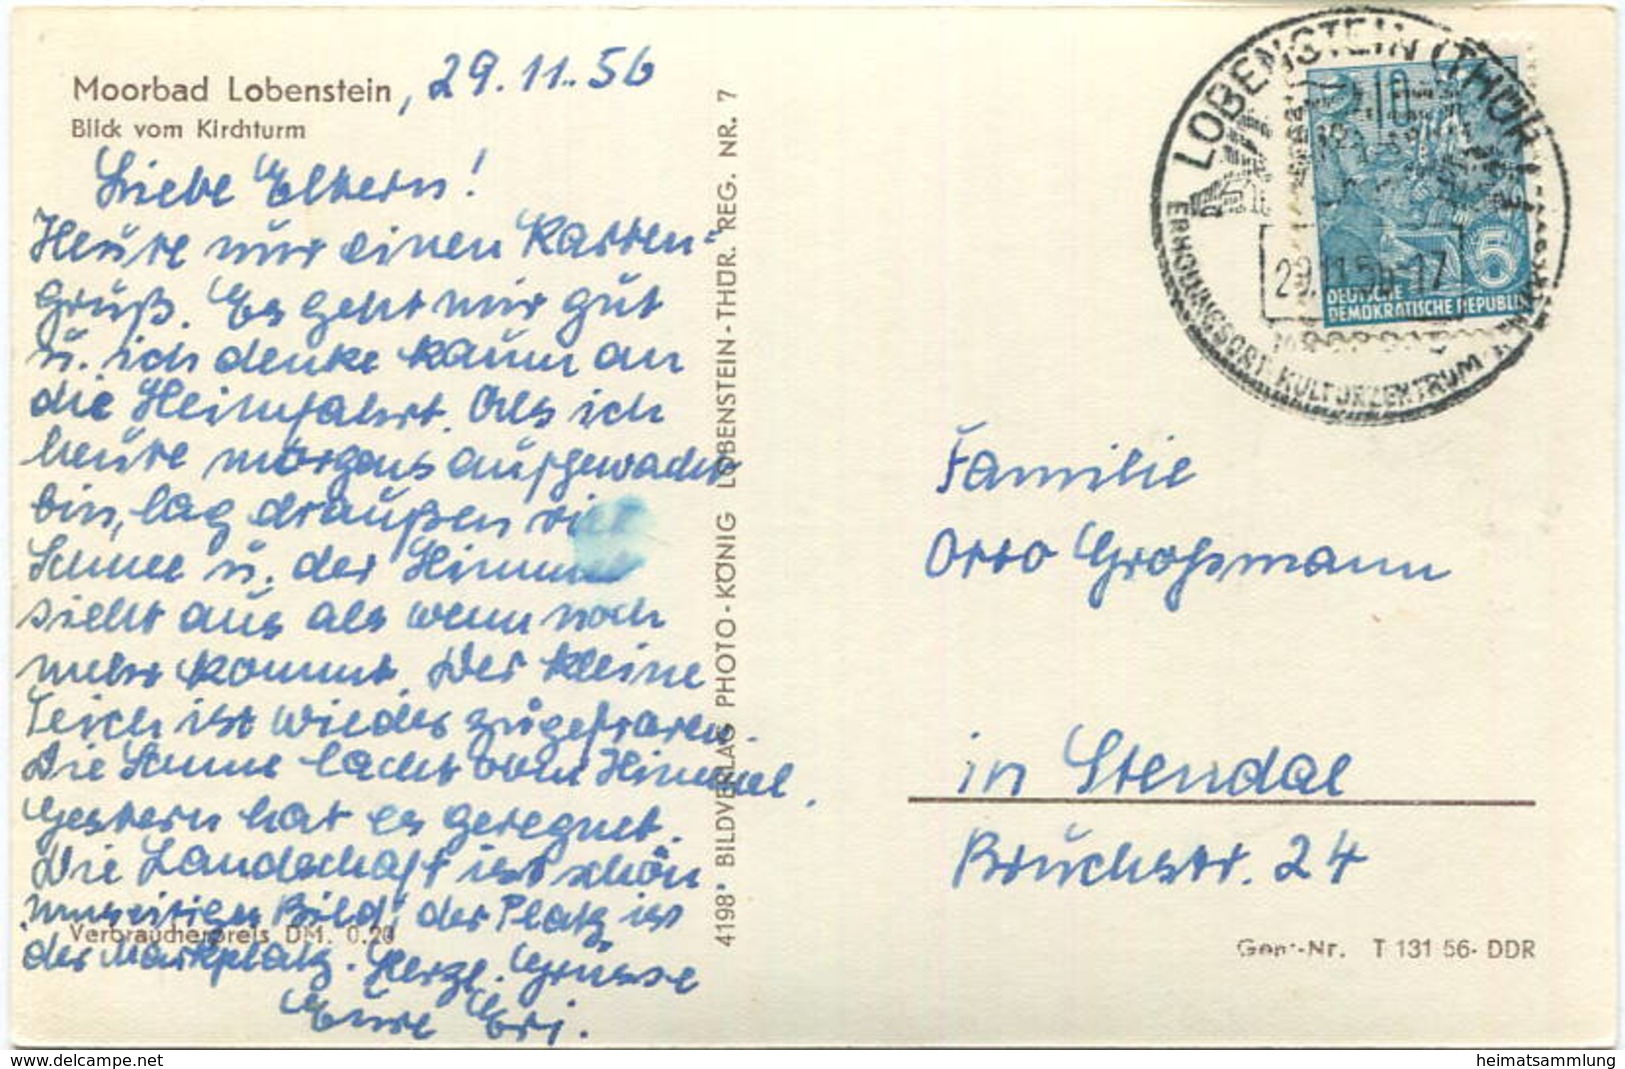 Moorbad Lobenstein, 29.11.56
Blick vom Kirchturm
Liebe Eltern!
Heute nur einen Karten-
gruß. Es geht mir gut
u. ich denke kaum an
die Heimfahrt. Als ich
heute morgens aufgewacht
bin, lag draußen viel
Schnee u. der Himmel
sieht aus als wenn noch
mehr kommt. Der kleine
Teich ist wieder zugefroren.
Die Sonne lacht vom Himmel.
Gestern hat es geregnet.
Die Landschaft ist schön
umseitiges Bild: der Platz ist
der Marktplatz. Herzl. Grüsse
Eure Eri.
Verbraucherpreis DM. 0.20
4198* BILDVERLAG PHOTO-KÖNIG LOBENSTEIN-THÜR. REG. NR. 7
LOBENSTEIN (THÜR)
29.11.56-17
ERHOLUNGSORT KULTURZENTRUM
10
5
DEUTSCHE
DEMOKRATISCHE REPUBLIK
Familie
Otto Großmann
in Stendal
Bruchstr. 24
Gen.-Nr. T 131 56- DDR
my-access.delcampe.net
heimatsammlung